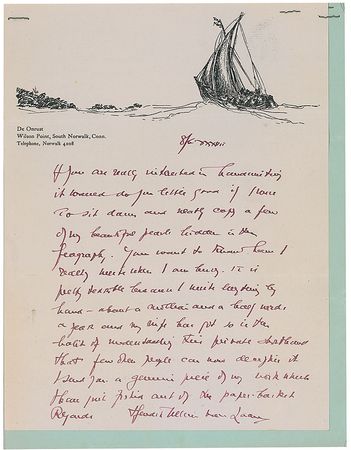 De Onrust
Wilson Point, South Norwalk, Conn.
Telephone, Norwalk 4208
If you are really interested in handwriting
it would do you little good if I were
to sit down and neatly copy a few
of my beautiful pearls hidden in the
Geography. You want to know how I
really write when I am busy. It is
pretty terrible because I write everything by
hand – about a million and a half words
a year and my wife has got so in the
habit of understanding this private shorthand
that few other people can now decipher it
I send you a genuine piece of my work which
I have just fished out of the paper-basket
Regards Hendrik Willem van Loon